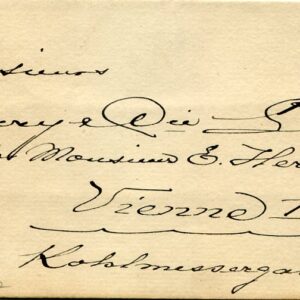 sieurs
ery & Cie
Monsieur E. Her
Vienne I
Kohlmesserga